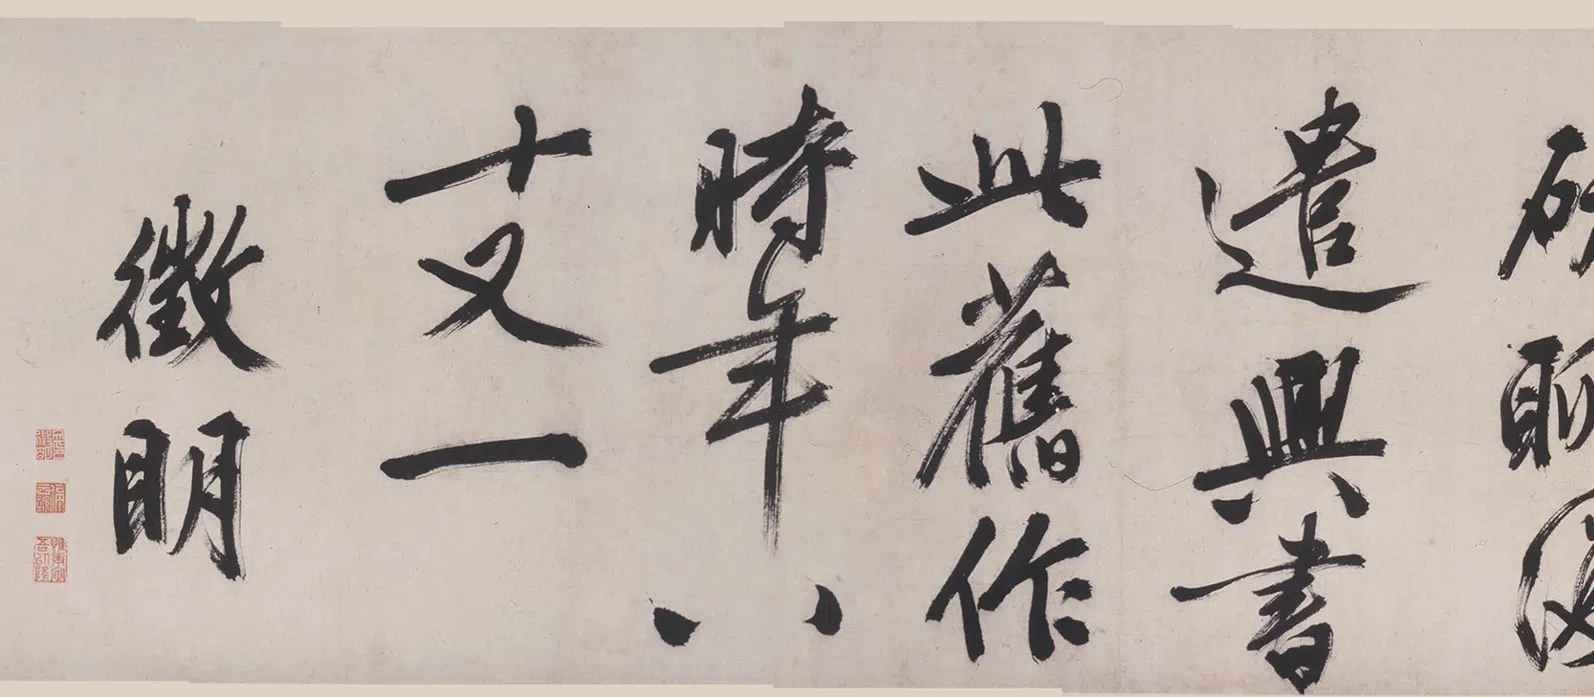 遣興書
此舊作
時年八
十又一
徵明